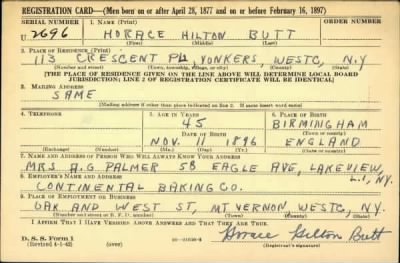 REGISTRATION CARD—(Men born on or after April 28, 1877 and on or before February 16, 1897)
SERIAL NUMBER 1. NAME (Print) ORDER NUMBER
U 2696 HORACE HILTON BUTT
(First) (Middle) (Last)
2. PLACE OF RESIDENCE (Print)
113 CRESCENT PL, YONKERS, WESTC, N.Y
(Number and street) (Town, township, village, or city) (County) (State)
[THE PLACE OF RESIDENCE GIVEN ON THE LINE ABOVE WILL DETERMINE LOCAL BOARD
JURISDICTION; LINE 2 OF REGISTRATION CERTIFICATE WILL BE IDENTICAL]
3. MAILING ADDRESS
SAME
[Mailing address if other than place indicated on line 2. If same insert word same]
4. TELEPHONE 5. AGE IN YEARS 6. PLACE OF BIRTH
45 BIRMINGHAM
DATE OF BIRTH (Town or county)
NOV. 11 1896 ENGLAND
(Exchange) (Number) (Mo.) (Day) (Yr.) (State or country)
7. NAME AND ADDRESS OF PERSON WHO WILL ALWAYS KNOW YOUR ADDRESS
MRS A.G. PALMER 58 EAGLE AVE, LAKEVIEW,
L.I., N.Y.
8. EMPLOYER'S NAME AND ADDRESS
CONTINENTAL BAKING CO.
9. PLACE OF EMPLOYMENT OR BUSINESS
OAK AND WEST ST, MT VERNON, WESTC, N.Y.
(Number and street or R. F. D. number) (Town) (County) (State)
I AFFIRM THAT I HAVE VERIFIED ABOVE ANSWERS AND THAT THEY ARE TRUE.
D. S. S. Form 1
(Revised 4-1-42) Horace Hilton Butt
(Registrant's signature)